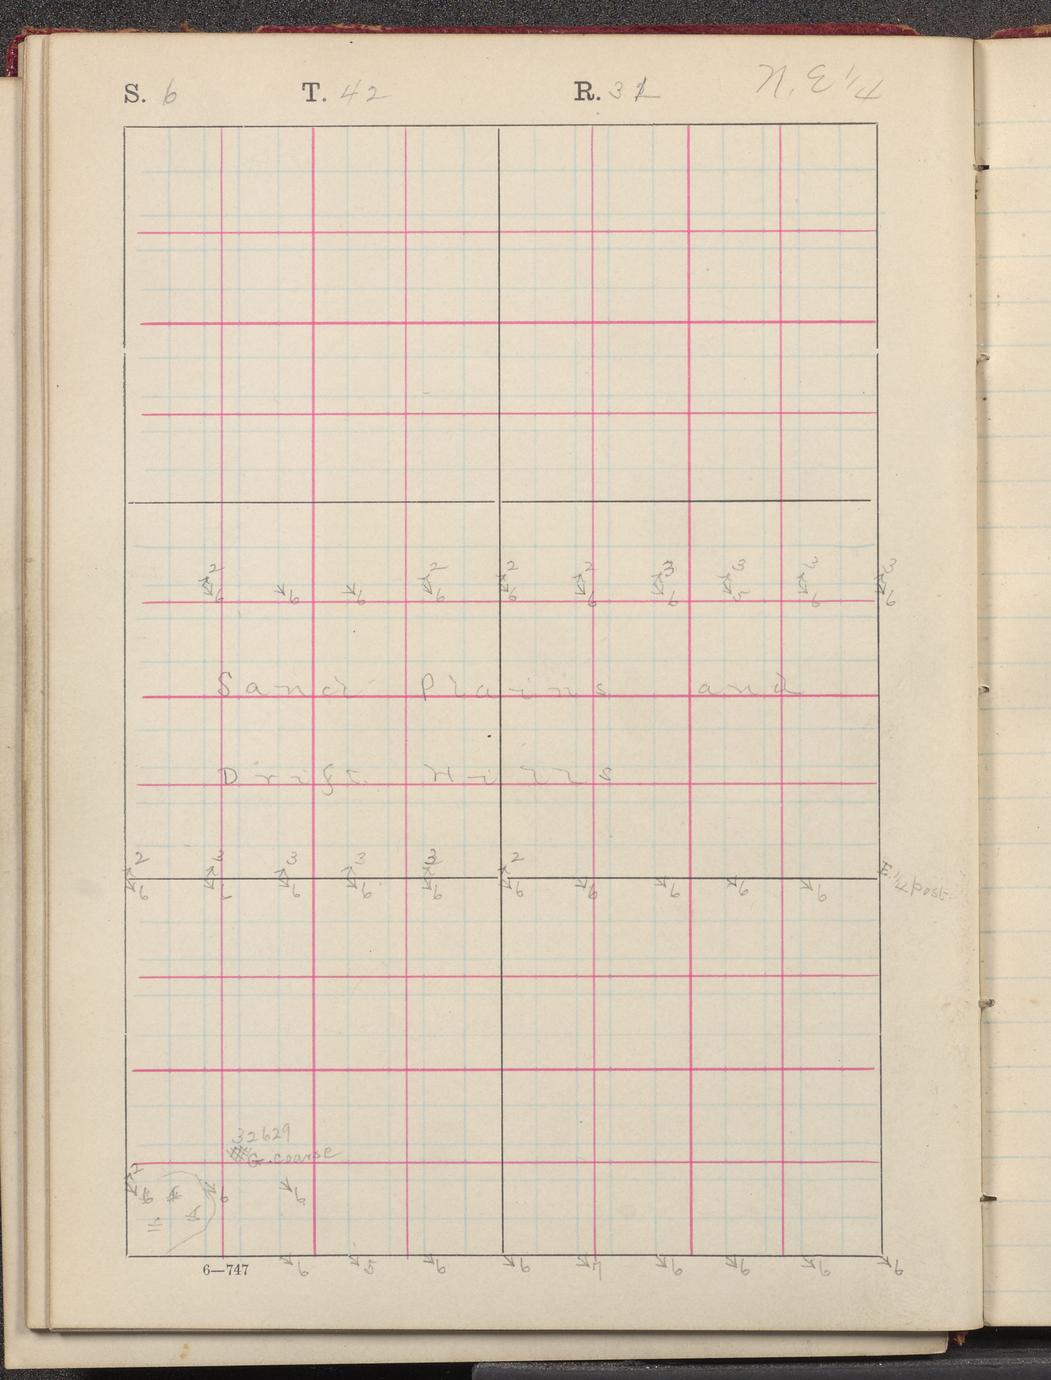 S. 6 T. 42 R. 31 N.E 1/4
2 2 2 2 3 3 3 3
6 6 6 6 6 6 6 5 6 6
Sand Plains and
Drift Hills
2 3 3 3 3 2
6 6 6 6 6 6 6 6 6 6
E 1/4 post
32629
G. coarse
2
6 6 6
6—747
6 5 6 6 7 6 6 6 6